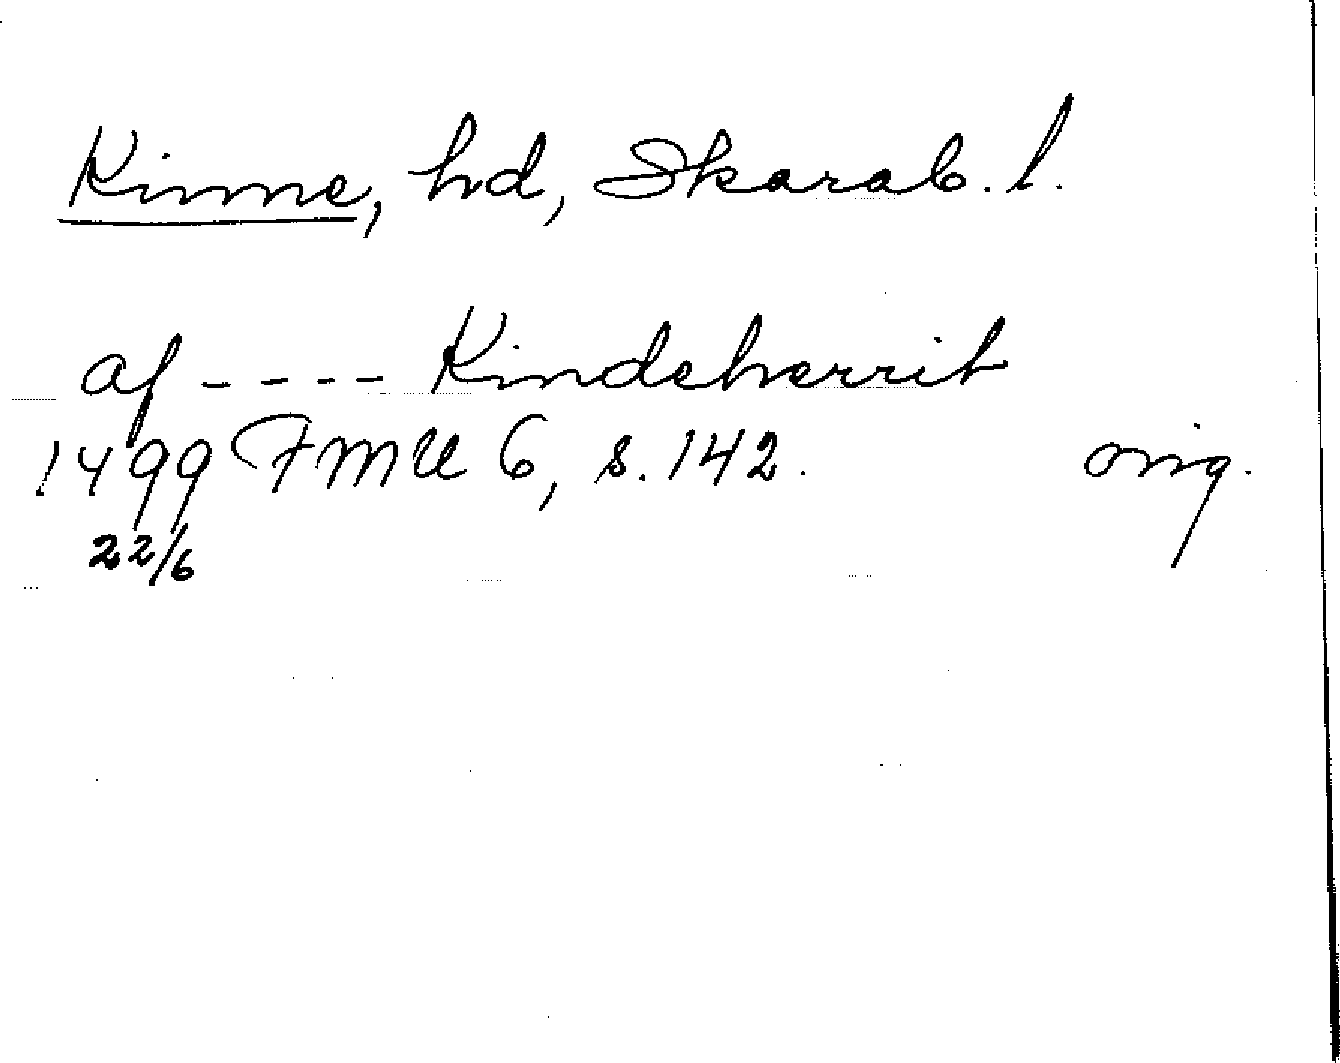 Kinne, hd, Skarab. l.
af ---- Kindeherrit
1499 FMU 6, s. 142. orig.
22/6